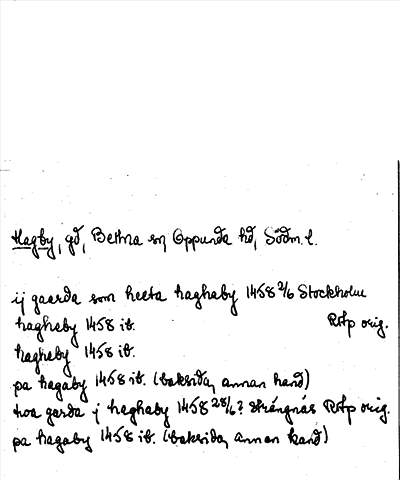 Hagby, gd, Bettna sn, Oppunda hd, Södm. l.
ij gaarda som heeta haghaby 1458 2/6 Stockholm
haghaby 1458 ib. RAp orig.
hagheby 1458 ib.
pa hagaby 1458 ib. (baksida, annan hand)
twa garda j haghaby 1458 28/6? Strängnäs RAp orig.
pa hagaby 1458 ib. (baksida, annan hand)